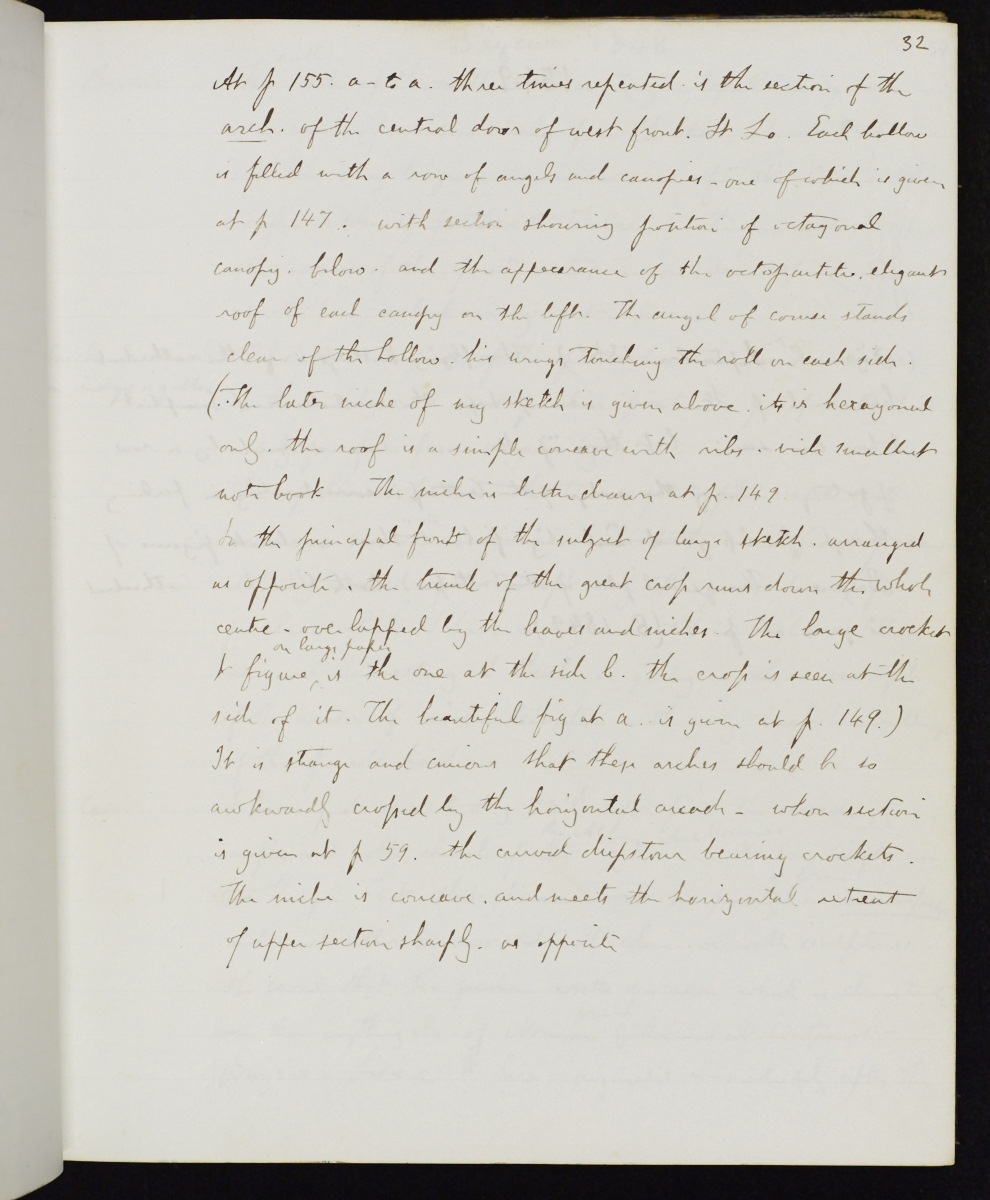 32
At p 155. a - to a. three times repeated is the section of the
arch. of the central door of west front. St Lo. Each hollow
is filled with a row of angels and canopies - one of which is given
at p 147. with section showing position of octagonal
canopy. below. and the appearance of the octopartite. elegant
roof of each canopy on the left. The angel of course stands
clear of the hollow. his wings touching the roll on each side.
(. The later niche of my sketch is given above. it is hexagonal
only. the roof is a simple concave with ribs. vide smallest
note book The niche is better drawn at p. 149
In the principal front of the subject of large sketch. arranged
as opposite. the trunk of the great cross runs down the whole
centre - overlapped by the leaves and niches. The large crocket
on large paper
& figure, is the one at the side b. the cross is seen at the
side of it. The beautiful fig at a. is given at p. 149.)
It is strange and curious that these arches should be so
awkwardly crossed by the horizontal arcade - whose section
is given at p 59. the curved dripstone bearing crockets.
The niche is concave. and meets the horizontal retreat
of upper section sharply. as opposite